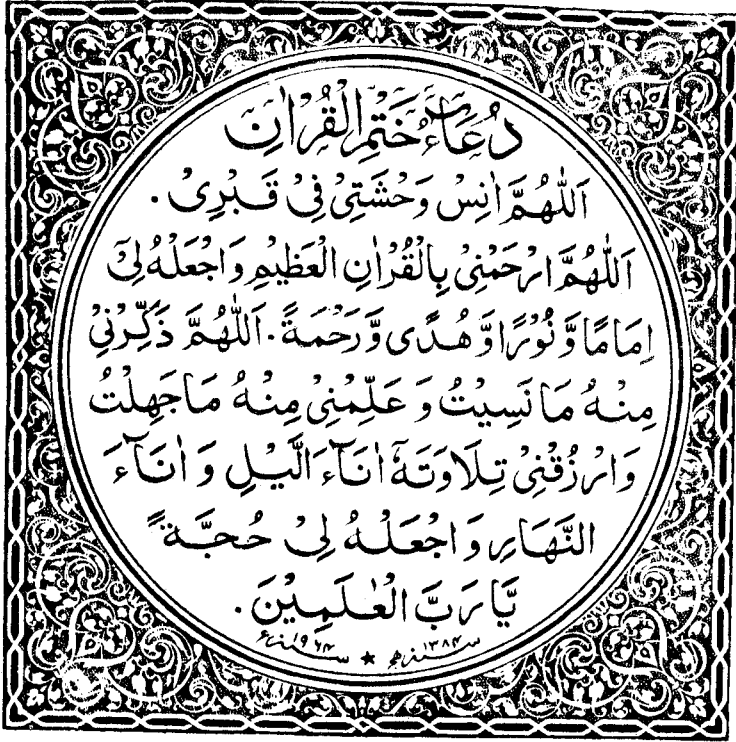 دُعَاءُ خَتْمِ الْقُرْاٰنِ
اَللّٰهُمَّ اٰنِسْ وَحْشَتِیْ فِیْ قَبْرِیْ ۔
اَللّٰهُمَّ ارْحَمْنِیْ بِالْقُرْاٰنِ الْعَظِیْمِ وَاجْعَلْهُ لِیْ
اِمَامًا وَّ نُوْرًا وَّ هُدًی وَّ رَحْمَةً ۔ اَللّٰهُمَّ ذَكِّرْنِیْ
مِنْهُ مَا نَسِیْتُ وَ عَلِّمْنِیْ مِنْهُ مَا جَهِلْتُ
وَارْزُقْنِیْ تِلَاوَتَهٗ اٰنَآءَ الَّیْلِ وَ اٰنَآءَ
النَّهَارِ وَاجْعَلْهُ لِیْ حُجَّةً
یَّا رَبَّ الْعٰلَمِیْنَ ۔
سنہ ۱۳۸۴ھ ★ سنہ ۱۹۶۴ء